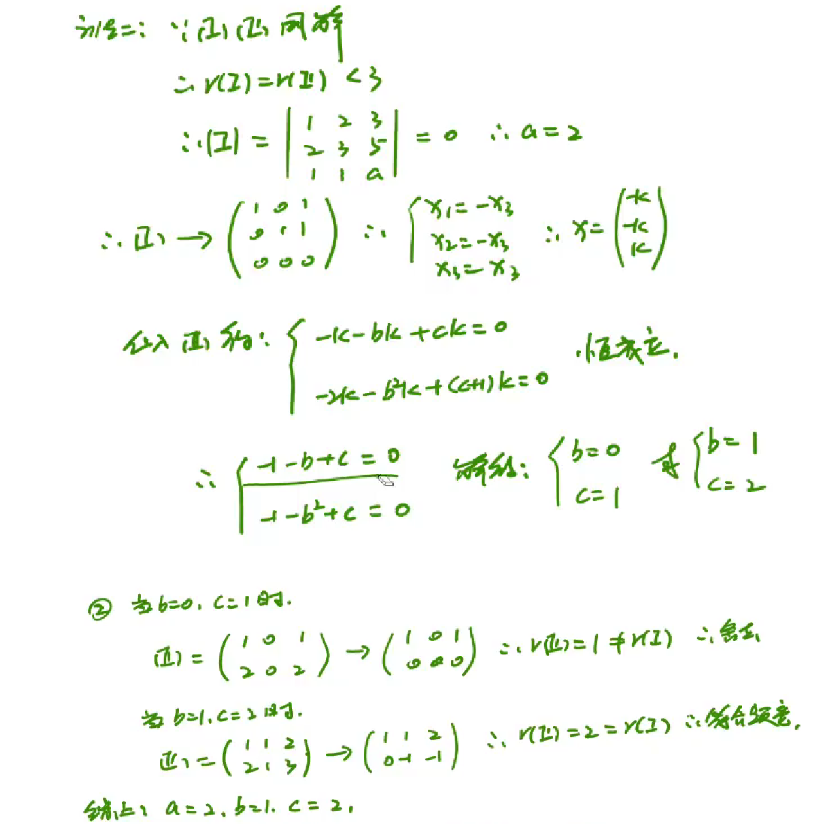 法二: ∵(I)(II)同解
∴r(I)=r(II)<3
∴|I| = | 1 2 3 ; 2 3 5 ; 1 1 a | = 0 ∴a=2
∴(I)→( 1 0 1 ; 0 1 1 ; 0 0 0 ) ∴ { x₁=-x₃ ; x₂=-x₃ ; x₃=x₃ ∴ x=( -k ; -k ; k )
代入(II)得: { -k-bk+ck=0 ; -2k-b²k+(c+1)k=0 恒成立.
∴ { -1-b+c=0 ; -1-b²+c=0 解得: { b=0 ; c=1 或 { b=1 ; c=2
② 当b=0, c=1时.
(II)=( 1 0 1 ; 2 0 2 )→( 1 0 1 ; 0 0 0 ) ∴r(II)=1≠r(I) ∴舍去
当b=1, c=2时.
(II)=( 1 1 2 ; 2 1 3 )→( 1 1 2 ; 0 -1 -1 ) ∴r(II)=2=r(I) ∴符合题意.
综上: a=2, b=1, c=2.